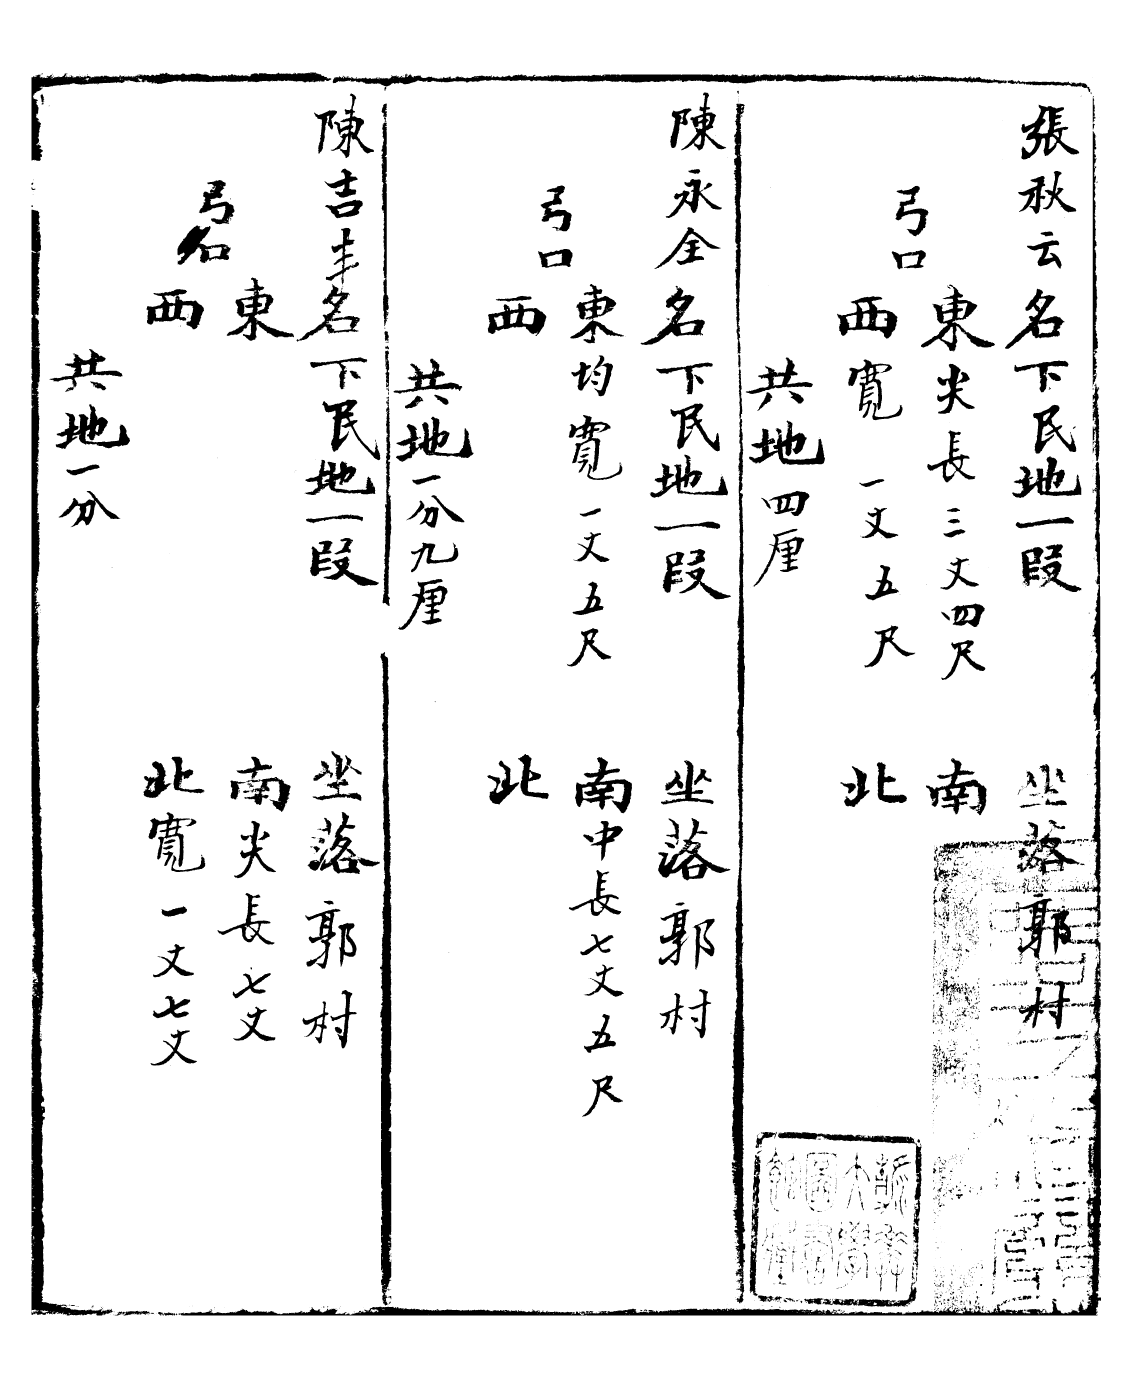 張秋云名下民地一段 坐落郭村
弓口
東尖長三丈四尺 南
西寬一丈五尺 北
共地四厘
陳永全名下民地一段 坐落郭村
弓口
東均寬一丈五尺 南中長七丈五尺
西 北
共地一分九厘
陳吉丰名下民地一段 坐落郭村
弓口
東 南尖長七丈
西 北寬一丈七丈
共地一分
大學
圖書